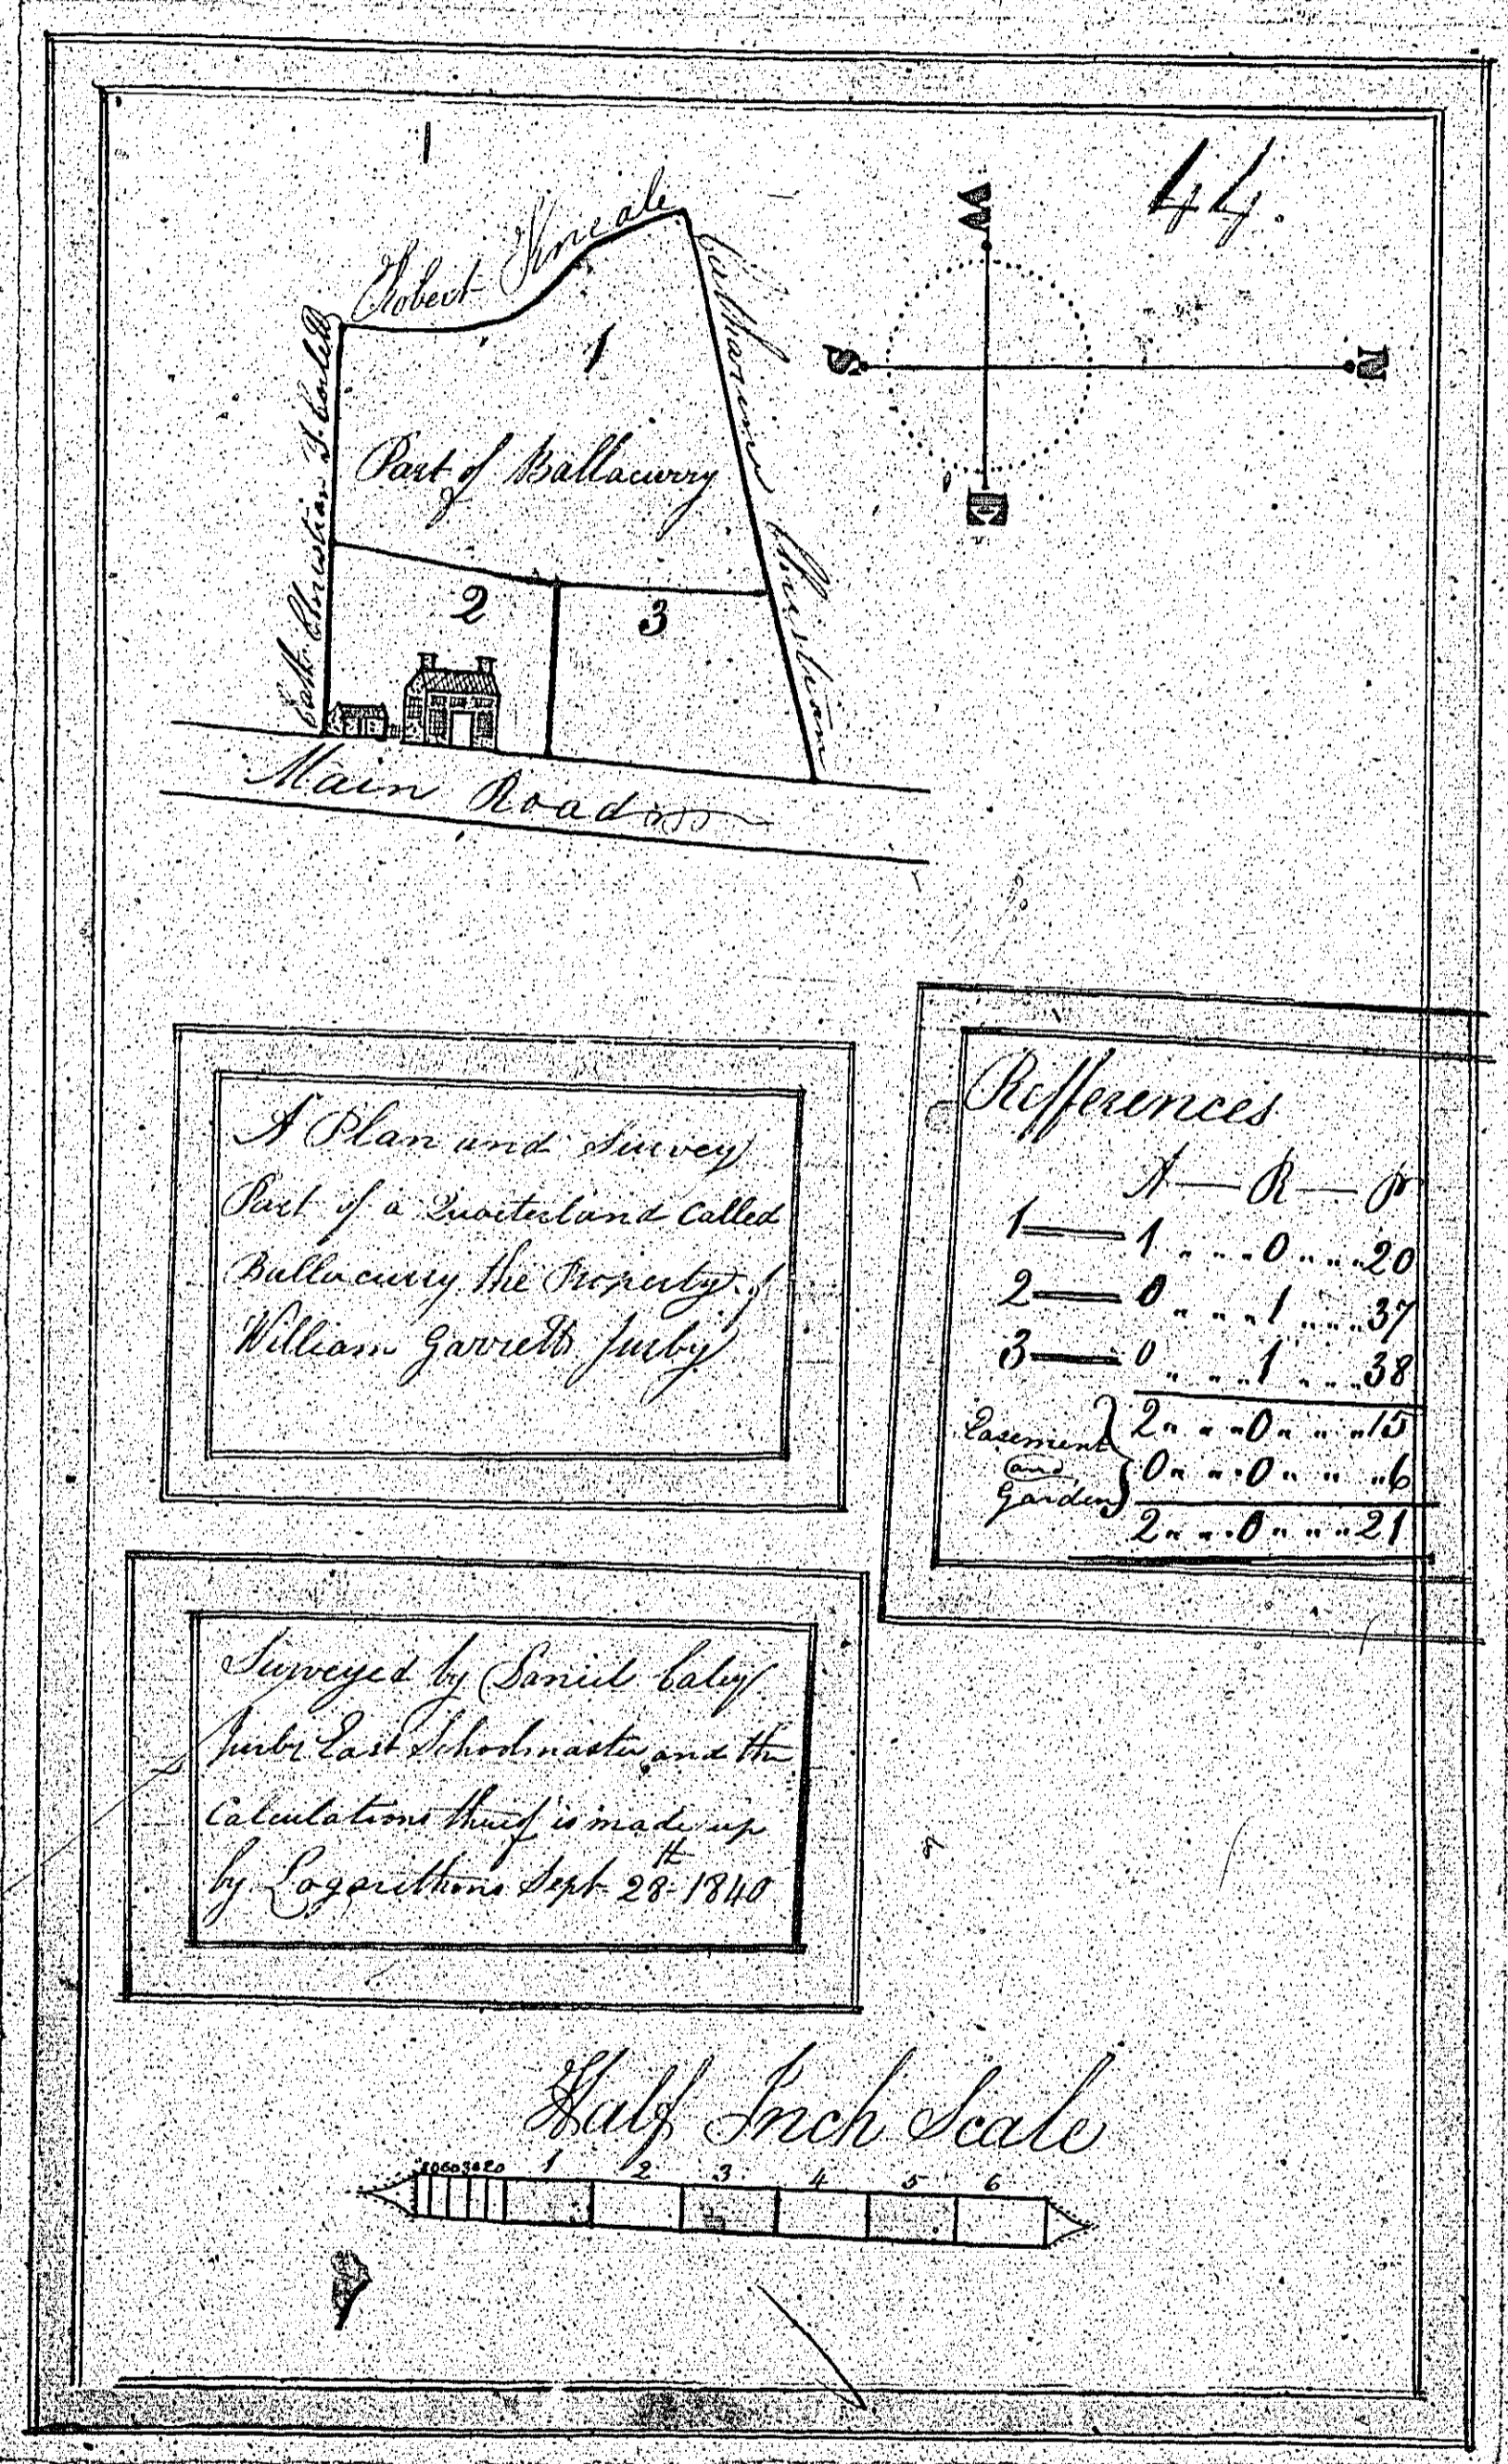 44.
W
S
N
E
Robert Kneale
Catharine Christian
Cath. Christian & Corlett
1
Part of Ballacurry
2
3
Main Road
A Plan and Survey
Part of a Quarterland Called
Ballacurry the Property of
William Garrett Jurby
Refferences
A — R — P
1 — 1 .. .. 0 .. .. 20
2 — 0 .. .. 1 .. .. 37
3 — 0 .. .. 1 .. .. 38
2 .. .. 0 .. .. 15
Easement and Garden } 0 .. .. 0 .. .. 6
2 .. .. 0 .. .. 21
Surveyed by Daniel Caley
Jurby East Schoolmaster and the
Calculations thereof is made up
by Logarithms Sept 28th 1840
Half Inch Scale
1 2 3 4 5 6